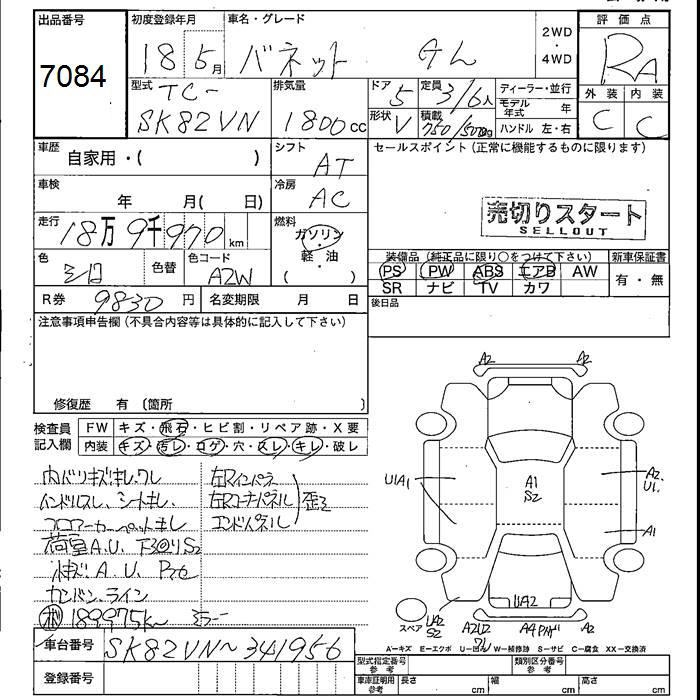 出品番号
7084
初度登録年月
18 5月
車名・グレード
バネット
2WD
・
4WD
評価点
RA
外装 内装
C C
型式
TC-
SK82VN
排気量
1800cc
ドア 5
形状 V
定員 3/6人
積載 750/500kg
ディーラー・並行
モデル年式 年
ハンドル 左・右
車歴
自家用・( )
シフト
AT
セールスポイント(正常に機能するものに限ります)
車検
年 月( 日)
冷房
AC
売切りスタート
SELLOUT
走行
18万9千970km
燃料
ガソリン
軽・油
( )
色
シロ
色替
色コード
AZW
装備品(純正品に限り○をつけて下さい)
PS PW ABS エアB AW
SR ナビ TV カワ
新車保証書
有・無
R券 9830円
名変期限 月 日
後日品
注意事項申告欄(不具合内容等は具体的に記入して下さい)
修復歴 有(箇所
検査員記入欄
FW キズ・飛石・ヒビ割・リペア跡・X要
内装 キズ・汚レ・コゲ・穴・スレ・キレ・破レ
内バリキズキレワレ
ハンドルスレ、シートキレ、
フロアーカーペットキレ
荷室A.U、下回りS2
カンバン、ライン
189975k~ ミラー
左Rインパネ
左Rコーナパネル
エンドパネル
歪ミ
車台番号 SK82VN~341956
登録番号
A2
A2
U1A1
A1
S2
A2
U1
A1
UA2
スペア
UA2
S2
A2U2
A2
A=キズ E=エクボ U=凹ん W=補修跡 S=サビ C=腐食 XX=交換済
型式指定番号
参考
類別区分番号
参考
車庫証明用
参考
長さ cm
幅 cm
高さ cm